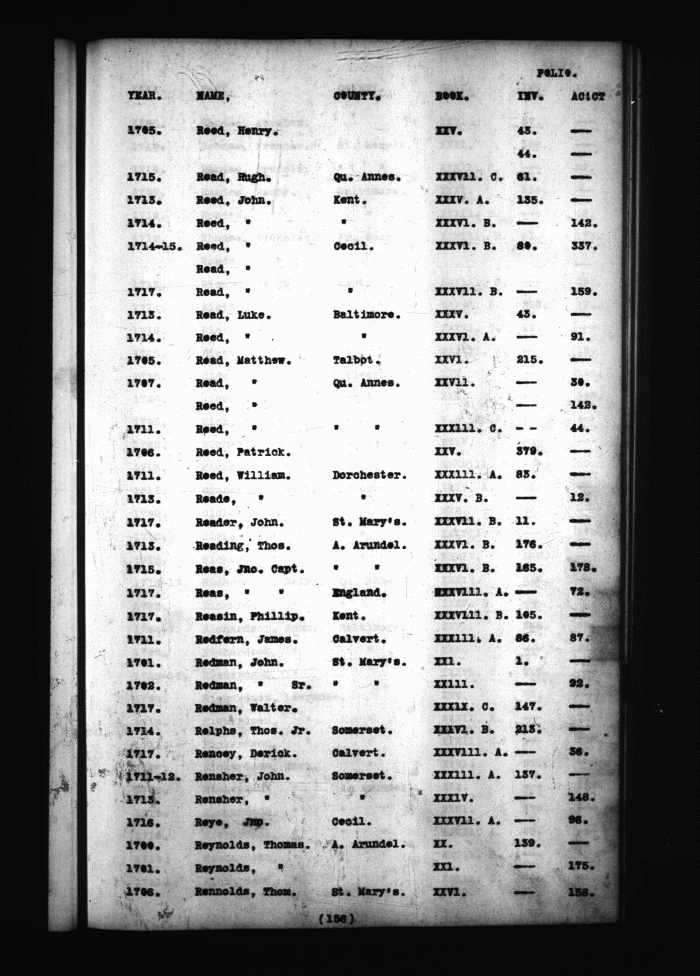 FOLIO.
YEAR. NAME, COUNTY. BOOK. INV. ACiCT
1705. Reed, Henry. XXV. 43. —
44. —
1715. Read, Hugh. Qu. Annes. XXXVll. C. 61. —
1713. Reed, John. Kent. XXXV. A. 135. —
1714. Reed, " " XXXVl. B. — 142.
1714-15. Reed, " Cecil. XXXVl. B. 80. 337.
Read, "
1717. Read, " " XXXVll. B. — 159.
1713. Read, Luke. Baltimore. XXXV. 43. —
1714. Reed, " " XXXVl. A. — 91.
1705. Read, Matthew. Talbot. XXVl. 215. —
1707. Read, " Qu. Annes. XXVll. — 30.
Reed, " — 142.
1711. Reed, " " " XXXlll. C. - - 44.
1706. Reed, Patrick. XXV. 379. —
1711. Reed, William. Dorchester. XXXlll. A. 83. —
1713. Reade, " " XXXV. B. — 12.
1717. Reader, John. St. Mary's. XXXVll. B. 11. —
1713. Reading, Thos. A. Arundel. XXXVl. B. 176. —
1715. Reas, Jno. Capt. " " XXXVl. B. 165. 178.
1717. Reas, " " England. XXXVlll. A. — 72.
1717. Reasin, Phillip. Kent. XXXVlll. B. 105. —
1711. Redfern, James. Calvert. XXXlll. A. 86. 87.
1701. Redman, John. St. Mary's. XXl. 1. —
1702. Redman, " Sr. " " XXlll. — 92.
1717. Redman, Walter. XXXlX. C. 147. —
1714. Relphs, Thos. Jr. Somerset. XXXVl. B. 213. —
1717. Rencey, Derick. Calvert. XXXVlll. A. — 36.
1711-12. Rensher, John. Somerset. XXXlll. A. 137. —
1713. Rensher, " " XXXlV. — 148.
1716. Reye, Jno. Cecil. XXXVll. A. — 96.
1700. Reynolds, Thomas. A. Arundel. XX. 139. —
1701. Reynolds, " XXl. — 175.
1706. Rennolds, Thom. St. Mary's. XXVl. — 158.
(156)